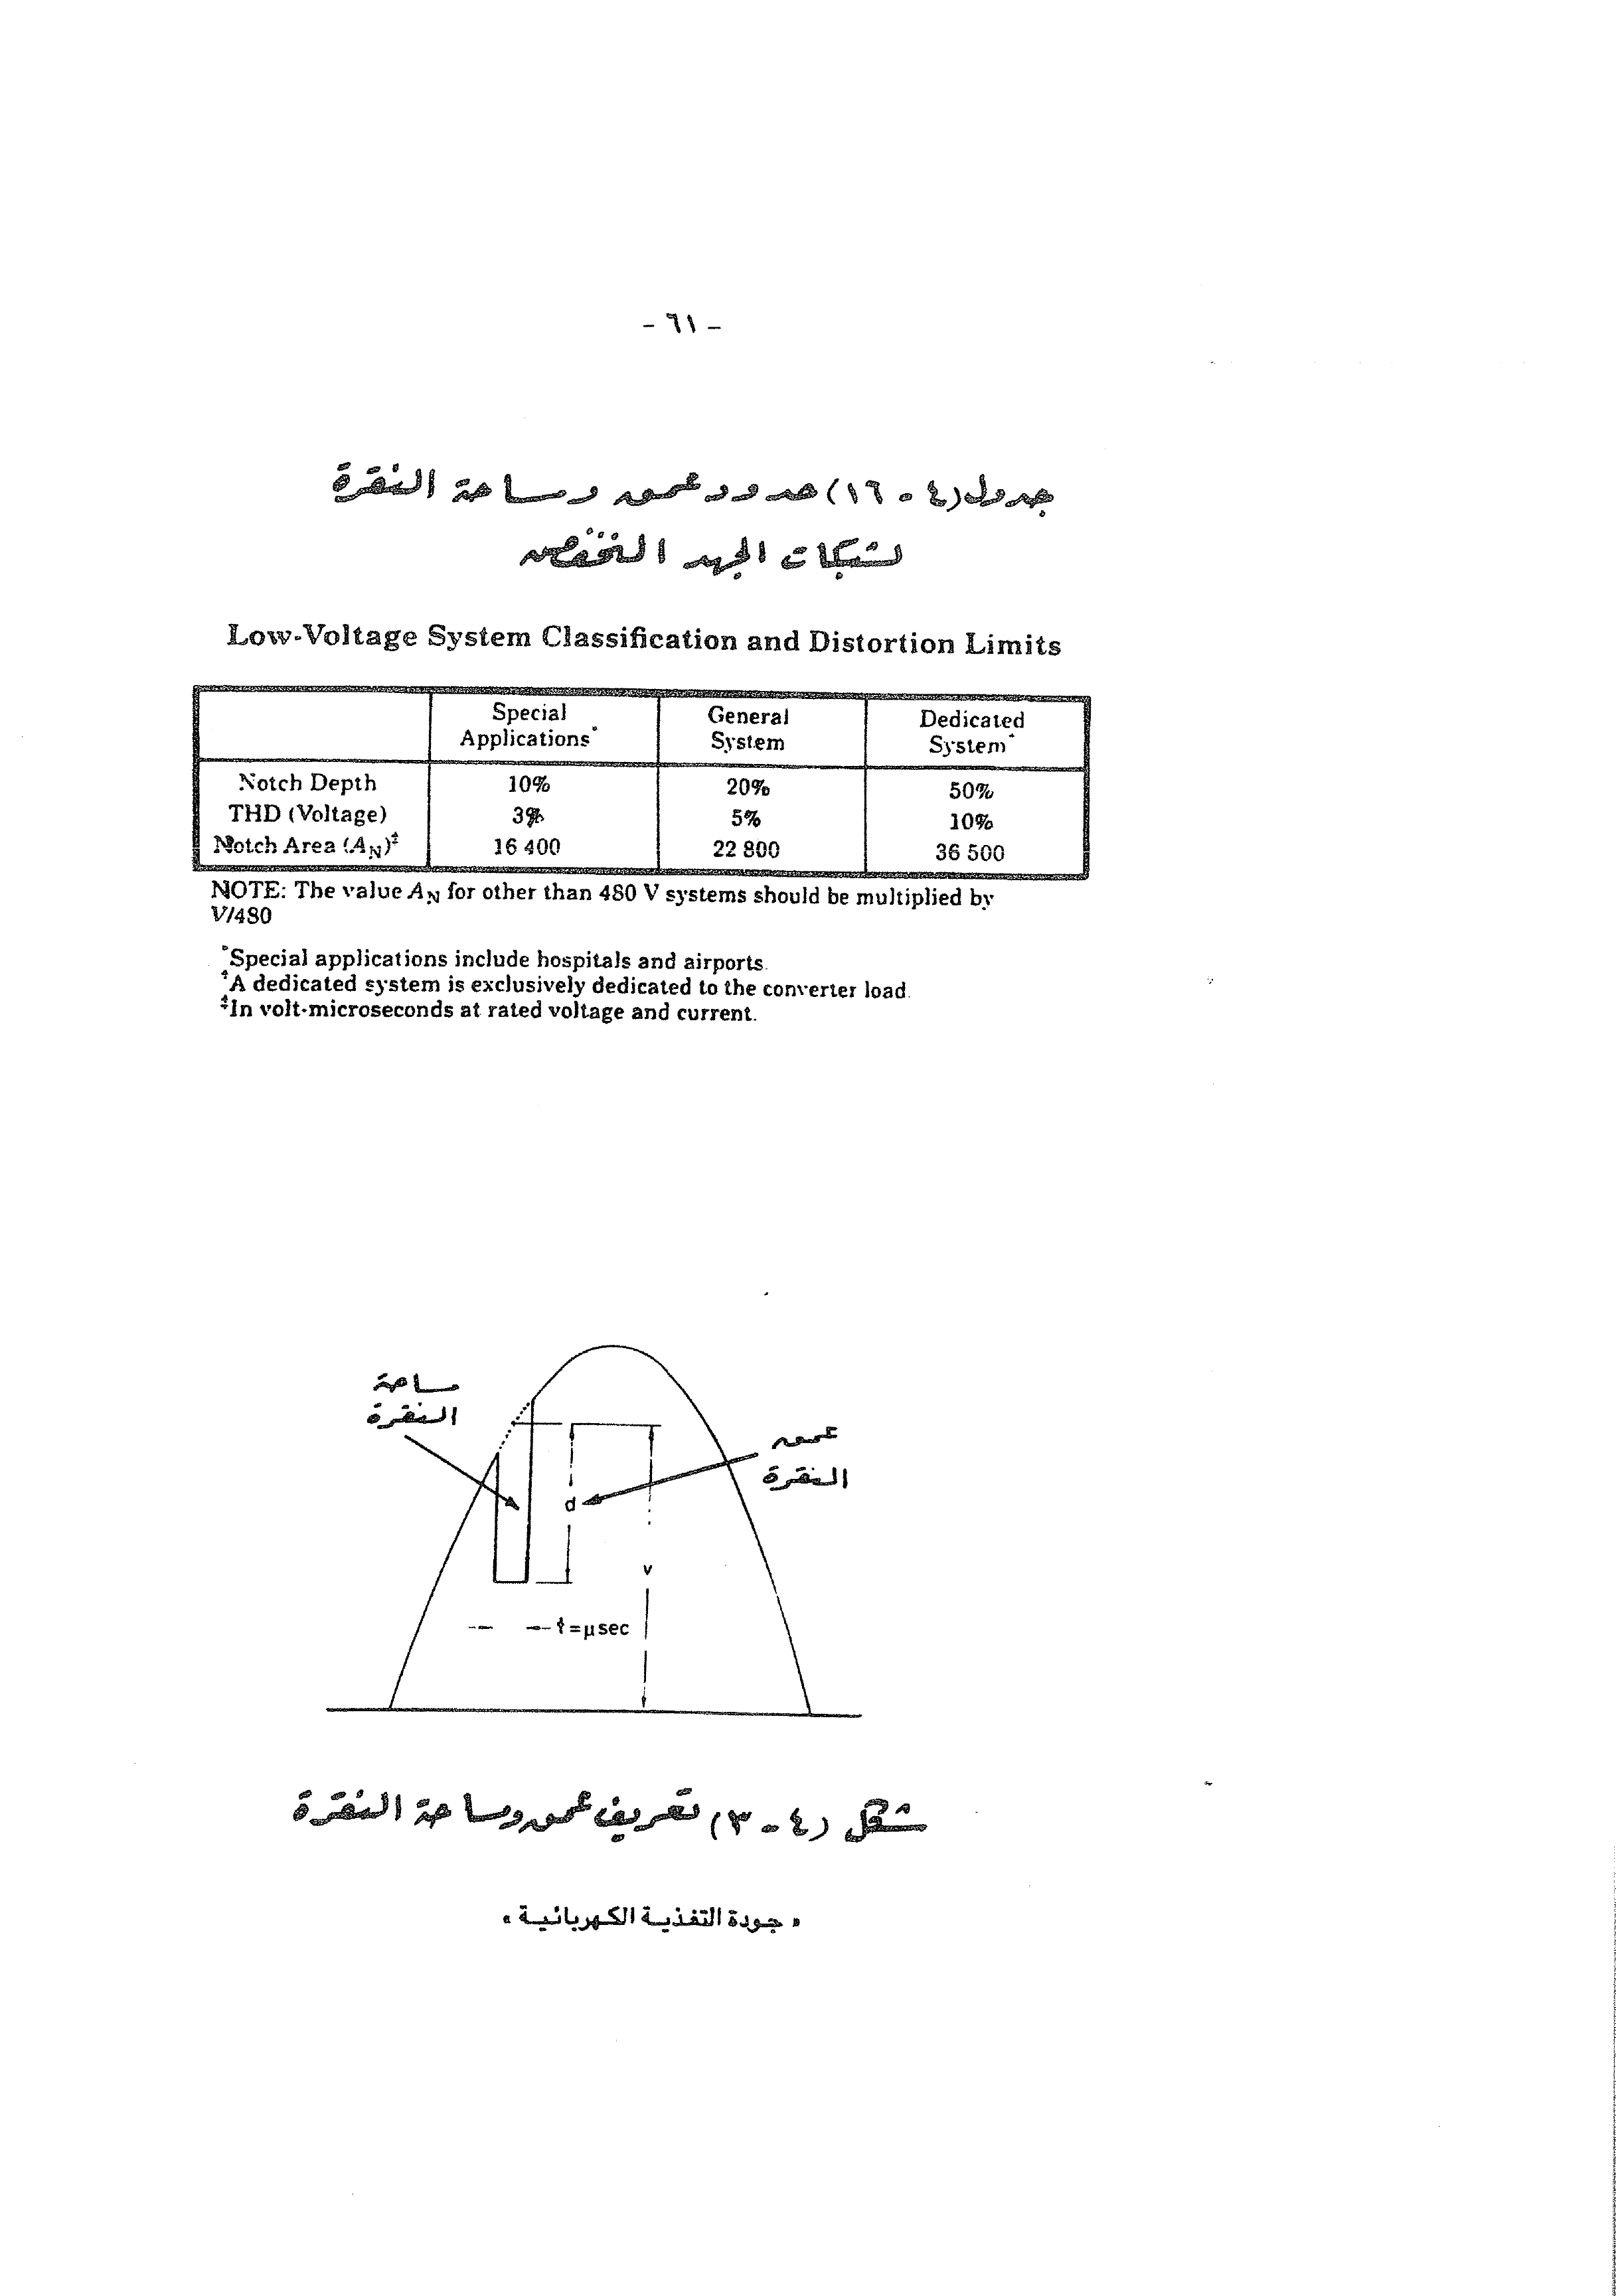 - ٦١ -
جدول (٤ - ١٦) حدود عمق ومساحة النقرة
لشبكات الجهد المنخفض
Low-Voltage System Classification and Distortion Limits
Special Applications* General System Dedicated System†
Notch Depth 10% 20% 50%
THD (Voltage) 3% 5% 10%
Notch Area (A_N)‡ 16 400 22 800 36 500
NOTE: The value A_N for other than 480 V systems should be multiplied by
V/480
*Special applications include hospitals and airports.
†A dedicated system is exclusively dedicated to the converter load.
‡In volt-microseconds at rated voltage and current.
مساحة
النقرة
عمق
النقرة
d
v
t = μsec
شكل (٤ - ٣) تعريف عمق ومساحة النقرة
« جودة التغذية الكهربائية »